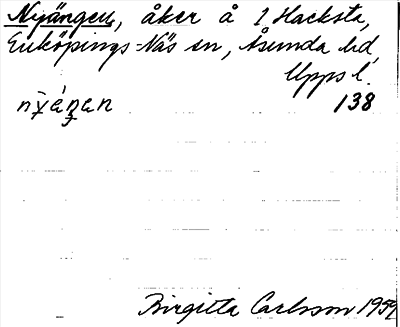 Nyängen, åker å 1 Hacksta,
Enköpings-Näs sn, Åsunda hd,
Upps l.
138
Birgitta Carlsson 1959